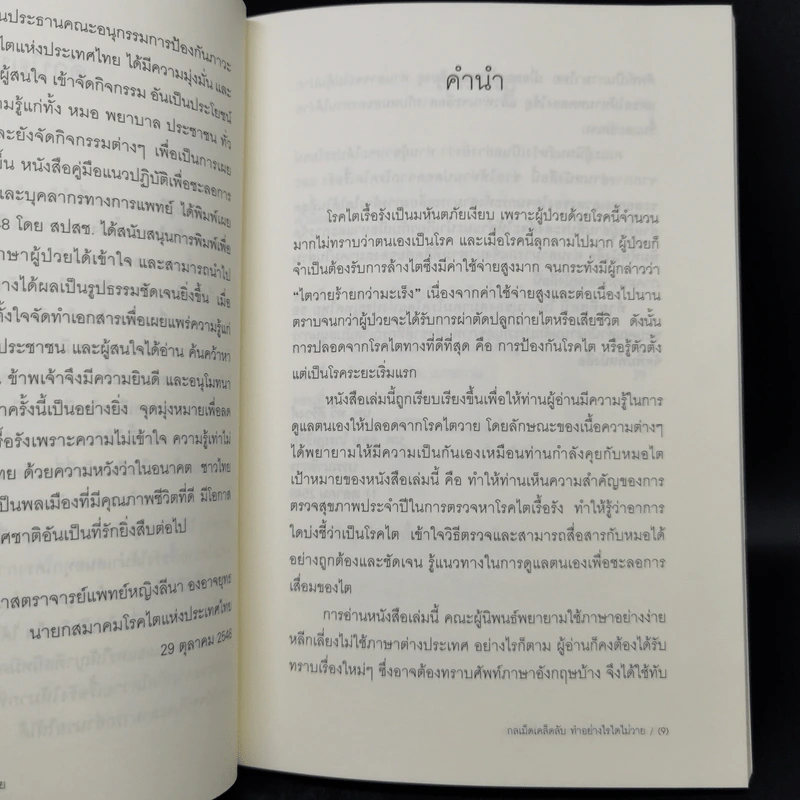 นประธานคณะอนุกรรมการป้องกันภาวะ
ไตแห่งประเทศไทย ได้มีความมุ่งมั่น และ
ผู้สนใจ เข้าจัดกิจกรรม อันเป็นประโยชน์
ามรู้แก่ทั้ง หมอ พยาบาล ประชาชน ทั่ว
จะยังจัดกิจกรรมต่างๆ เพื่อเป็นการเผย
ขึ้น หนังสือคู่มือแนวปฏิบัติเพื่อชะลอการ
และบุคลากรทางการแพทย์ ได้พิมพ์เผย
48 โดย สปสช. ได้สนับสนุนการพิมพ์เพื่อ
าษาผู้ป่วยได้เข้าใจ และสามารถนำไป
างได้ผลเป็นรูปธรรมชัดเจนยิ่งขึ้น เมื่อ
ั้งใจจัดทำเอกสารเพื่อเผยแพร่ความรู้แก่
ประชาชน และผู้สนใจได้อ่าน ค้นคว้าหา
ข้าพเจ้าจึงมีความยินดี และอนุโมทนา
าครั้งนี้เป็นอย่างยิ่ง จุดมุ่งหมายเพื่อลด
รื้อรังเพราะความไม่เข้าใจ ความรู้เท่าไม่
ทย ด้วยความหวังว่าในอนาคต ชาวไทย
เป็นพลเมืองที่มีคุณภาพชีวิตที่ดี มีโอกาส
ศชาติอันเป็นที่รักยิ่งสืบต่อไป
าสตราจารย์แพทย์หญิงลีนา องอาจยุทธ
นายกสมาคมโรคไตแห่งประเทศไทย
29 ตุลาคม 2548
คำนำ
โรคไตเรื้อรังเป็นมหันตภัยเงียบ เพราะผู้ป่วยด้วยโรคนี้จำนวน
มากไม่ทราบว่าตนเองเป็นโรค และเมื่อโรคนี้ลุกลามไปมาก ผู้ป่วยก็
จำเป็นต้องรับการล้างไตซึ่งมีค่าใช้จ่ายสูงมาก จนกระทั่งมีผู้กล่าวว่า
“ไตวายร้ายกว่ามะเร็ง” เนื่องจากค่าใช้จ่ายสูงและต่อเนื่องไปนาน
ตราบจนกว่าผู้ป่วยจะได้รับการผ่าตัดปลูกถ่ายไตหรือเสียชีวิต ดังนั้น
การปลอดจากโรคไตทางที่ดีที่สุด คือ การป้องกันโรคไต หรือรู้ตัวตั้ง
แต่เป็นโรคระยะเริ่มแรก
หนังสือเล่มนี้ถูกเรียบเรียงขึ้นเพื่อให้ท่านผู้อ่านมีความรู้ในการ
ดูแลตนเองให้ปลอดจากโรคไตวาย โดยลักษณะของเนื้อความต่างๆ
ได้พยายามให้มีความเป็นกันเองเหมือนท่านกำลังคุยกับหมอไต
เป้าหมายของหนังสือเล่มนี้ คือ ทำให้ท่านเห็นความสำคัญของการ
ตรวจสุขภาพประจำปีในการตรวจหาโรคไตเรื้อรัง ทำให้รู้ว่าอาการ
ใดบ่งชี้ว่าเป็นโรคไต เข้าใจวิธีตรวจและสามารถสื่อสารกับหมอได้
อย่างถูกต้องและชัดเจน รู้แนวทางในการดูแลตนเองเพื่อชะลอการ
เสื่อมของไต
การอ่านหนังสือเล่มนี้ คณะผู้นิพนธ์พยายามใช้ภาษาอย่างง่าย
หลีกเลี่ยงไม่ใช้ภาษาต่างประเทศ อย่างไรก็ตาม ผู้อ่านก็คงต้องได้รับ
ทราบเรื่องใหม่ๆ ซึ่งอาจต้องทราบศัพท์ภาษาอังกฤษบ้าง จึงได้ใช้ทับ
กลเม็ดเคล็ดลับ ทำอย่างไรไตไม่วาย / (9)